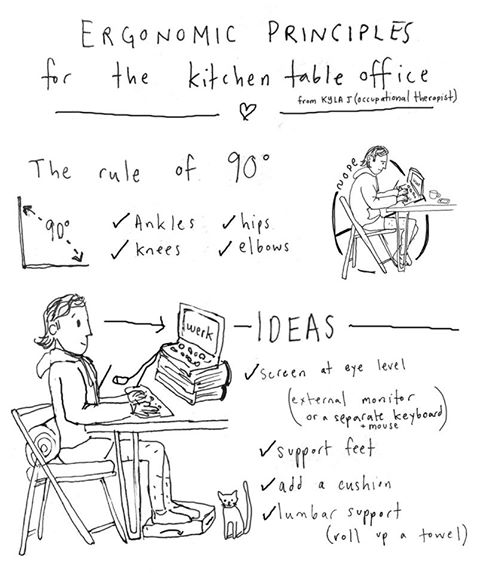 ERGONOMIC PRINCIPLES
for the kitchen table office
from KYLA J (occupational therapist)
The rule of 90°
90°
✓ Ankles ✓ hips
✓ knees ✓ elbows
NOPE
werk
IDEAS
✓ screen at eye level
(external monitor
or a separate keyboard
+ mouse)
✓ support feet
✓ add a cushion
✓ lumbar support
(roll up a towel)